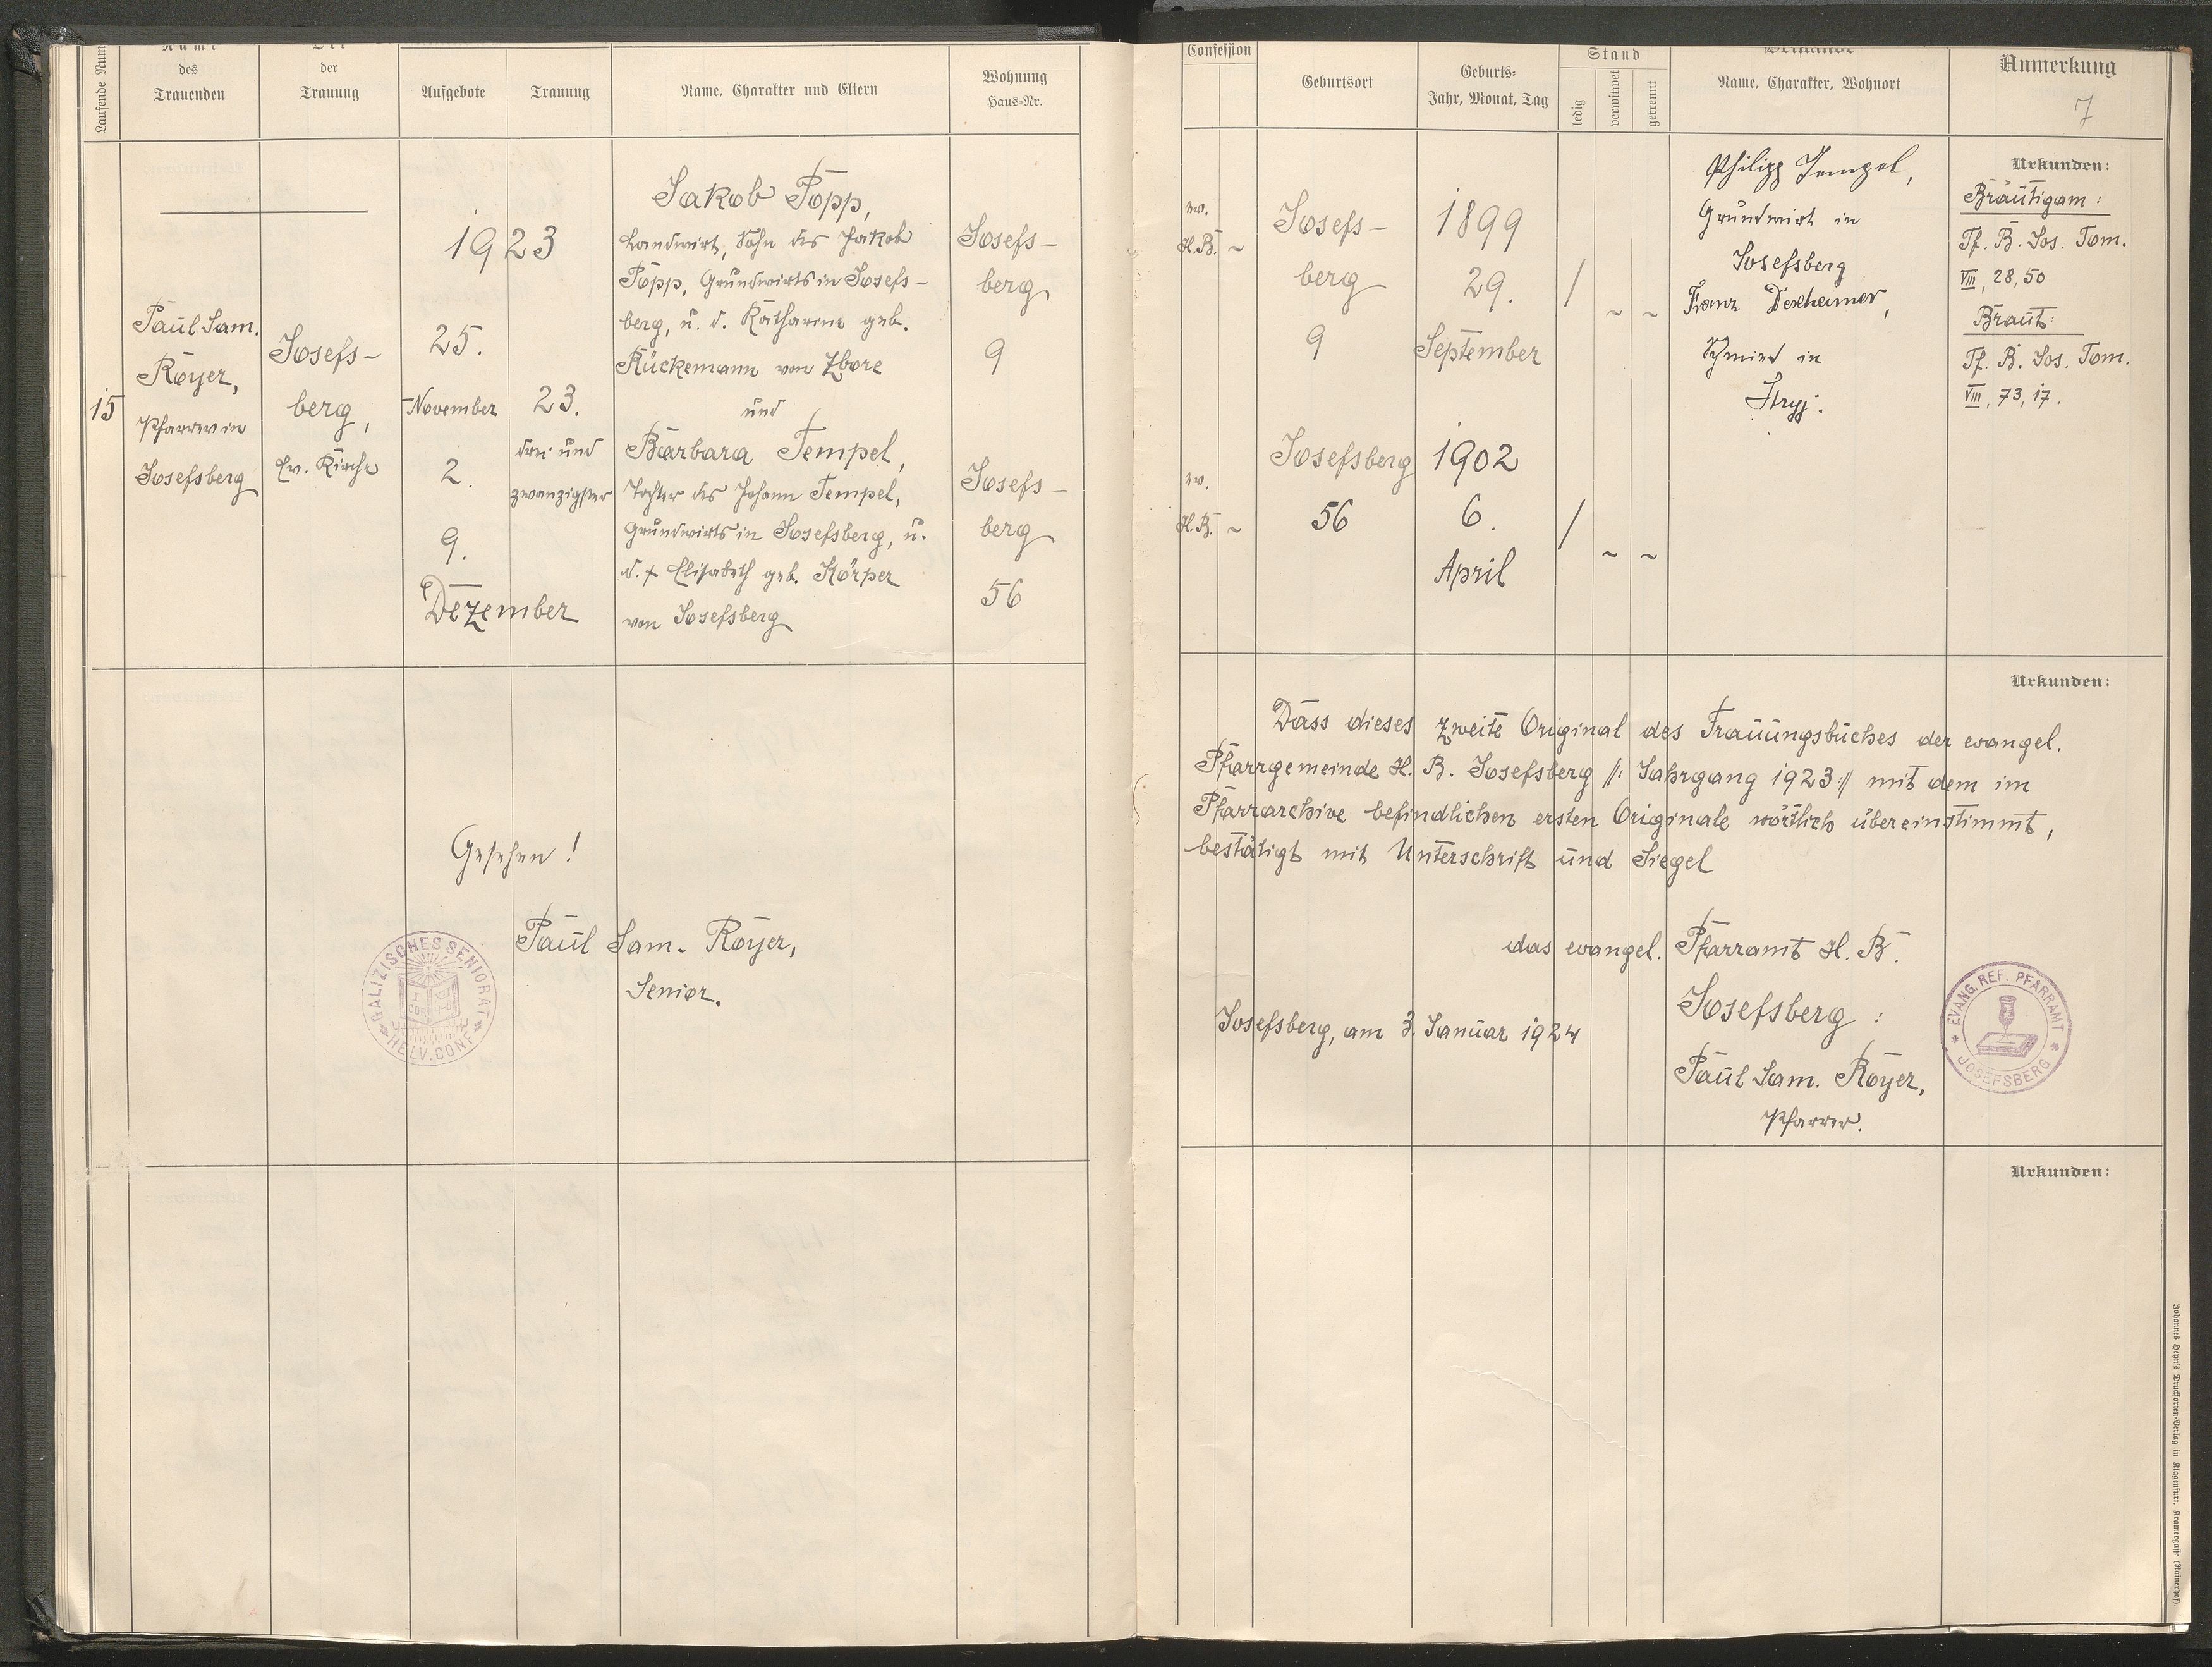 Laufende Num
Name
des
Trauenden
Der
der
Trauung
Aufgebote
Trauung
Name, Charakter und Eltern
Wohnung
Haus-Nr.
15
Paul Sam.
Royer,
Pfarrer in
Josefsberg
Josefs-
berg,
Ev. Kirche
1923
25.
November
2.
9.
Dezember
23.
drei und
zwanzigster
Jakob Popp,
Landwirt, Sohn des Jakob
Popp, Grundwirts in Josefs-
berg, u. d. Katharine geb.
Rückemann von Zbore
und
Barbara Tempel,
Tochter des Johann Tempel,
Grundwirts in Josefsberg, u.
d. + Elisabeth geb. Körper
von Josefsberg
Josefs-
berg
9
Josefs-
berg
56
Gesehen!
Paul Sam. Royer,
Senior.
GALIZISCHES SENIORAT
HELV. CONF.
Confession
Geburtsort
Geburts-
Jahr, Monat, Tag
Stand
ledig
verwitwet
getrennt
Beistände
Name, Charakter, Wohnort
Anmerkung
7
ev.
H.B. ~
Josefs-
berg
9
1899
29.
September
/ ~ ~
ev.
H.B. ~
Josefsberg
56
1902
6.
April
/ ~ ~
Philipp Tempel,
Grundwirt in
Josefsberg
Franz Dexheimer,
Schmied in
Stryj.
Urkunden:
Bräutigam:
Tf. B. Jos. Tom.
VIII, 28, 50
Braut:
Tf. B. Jos. Tom.
VIII, 73, 17.
Urkunden:
Dass dieses zweite Original des Trauungsbuches der evangel.
Pfarrgemeinde H. B. Josefsberg /: Jahrgang 1923 :/ mit dem im
Pfarrarchive befindlichen ersten Originale wörtlich übereinstimmt,
bestätigt mit Unterschrift und Siegel
das evangel. Pfarramt H. B.
Josefsberg :
Josefsberg, am 3. Januar 1924
Paul Sam. Royer,
Pfarrer.
EVANG. REF. PFARRAMT
JOSEFSBERG
Urkunden:
Johannes Heyn's Drucksorten-Verlag in Klagenfurt, Kramergasse (Rainerhof).